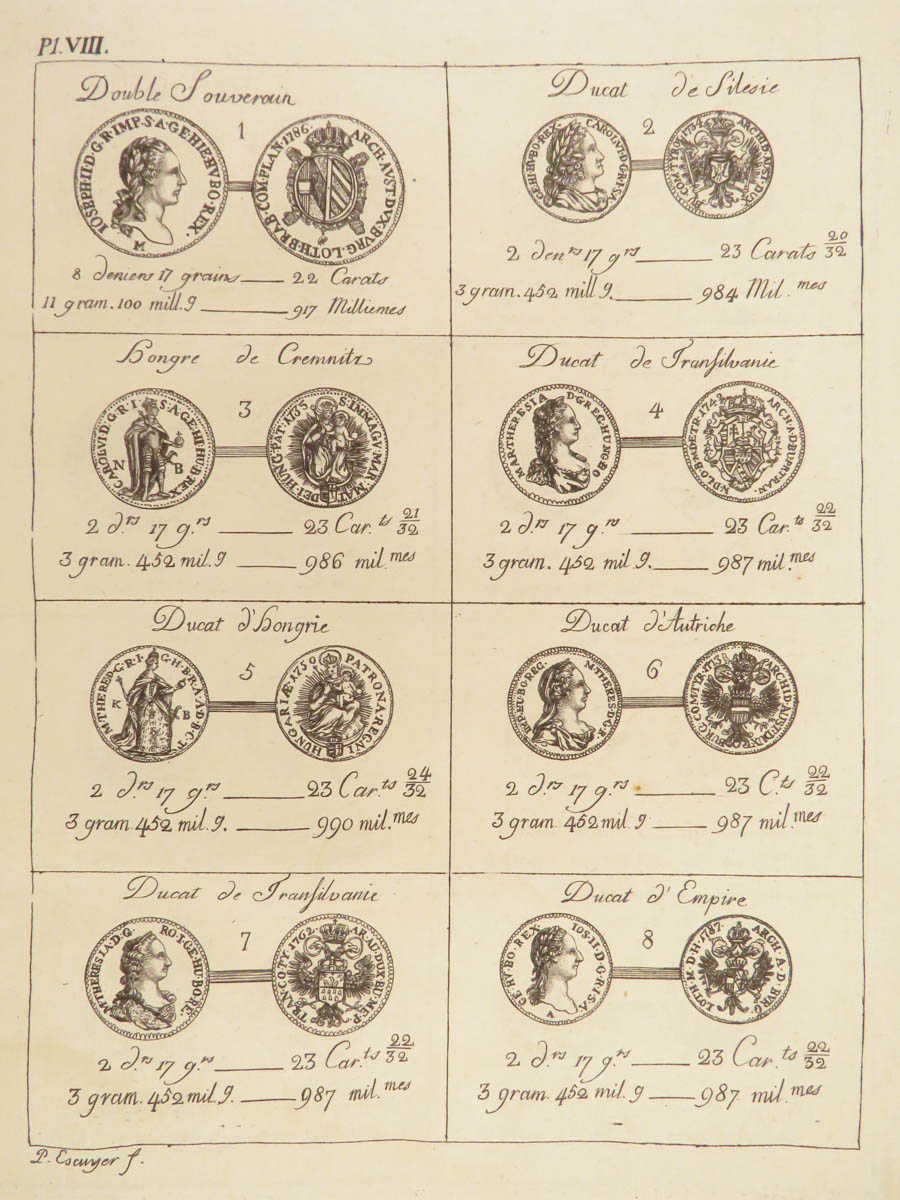 Pl. VIII.
Double Souverain
1
IOSEPH·II·D·G·R·IMP·S·A·GE·HIE·HV·BO·REX.
M
ARCH·AVST·DVX·BVRG·LOTH·BRAB·COM·FLAN·1786.
8 deniers 17 grains 22 Carats
11 gram. 100 mill. g 917 Milliemes
Ducat de Silesie
2
CAROL·VI·D·G·R·I·S·A· GE·HI·HV·BO·REX·
ARCHID·AUST·DUX
COM·TYROL·1734
2 den.rs 17 g.rs 23 Carats 20/32
3 gram. 452 mill g. 984 Mil.mes
Hongre de Cremnitz
3
CAR·OL·VI·D·G·R·I·S·A·GE·HI·HU·B·REX
N B
S·IMMAGV·MAR·MAT·DEI·HUNG·PAT·1735
2 d.rs 17 g.rs 23 Car.ts 21/32
3 gram. 452 mil. g 986 mil.mes
Ducat de Transilvanie
4
MAR·THERESIA D·G·REG·HUNG·BO
ARCH·A·D·BURTRAN·N·D·LO·B·M·DE·TR·1742
2 d.rs 17 g.rs 23 Car.ts 22/32
3 gram. 452 mil. g. 987 mil.mes
Ducat d'Hongrie
5
M·THERED·G·R·I·G·H·B·R·A·A·D·B·C·T·
K B
PATRONA·REGNI HUNGARIÆ·1750
2 d.rs 17 g.rs 23 Car.ts 24/32
3 gram 452 mil. g. 990 mil.mes
Ducat d'Autriche
6
M·THERES·D·G·R· IMP·HU·BO·REG·
ARCHID·AUST·DUX BURG·COM·TYR·
2 d.rs 17 g.rs 23 C.ts 22/32
3 gram 452 mil g 987 mil.mes
Ducat de Transilvanie
7
M·THERESIA·D·G· RO·I·GE·HU·BO·RE·
AR·AU·DUX·BU·ME·P· TRAN·CO·TY·1762·
2 d.rs 17 g.rs 23 Car.ts 22/32
3 gram. 452 mil. g. 987 mil.mes
Ducat d'Empire
8
IOS·II·D·G·R·I·S·A· GE·HV·BO·REX·
A
ARCH·A·D·BVRG· LOTH·M·D·H·1787·
2 d.rs 17 g.rs 23 Car.ts 22/32
3 gram. 452 mil. g 987 mil.mes
P. Escuyer f.